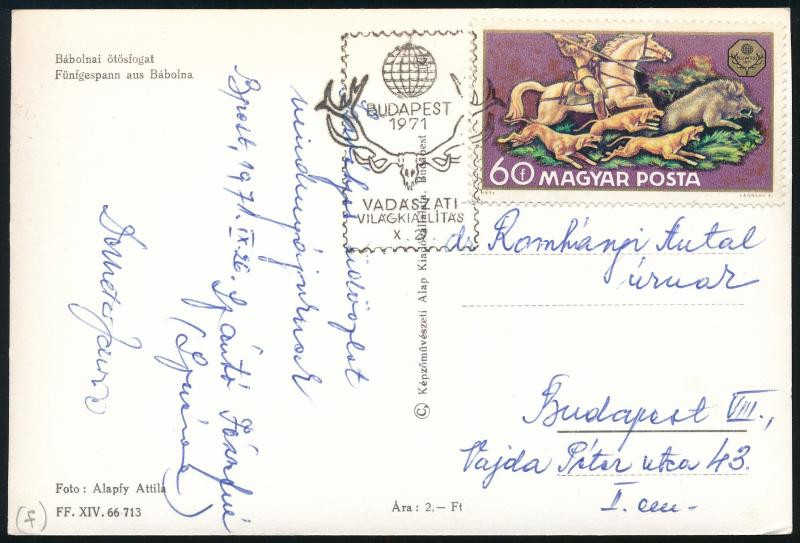 Bábolnai ötösfogat
Fünfgespann aus Bábolna
BUDAPEST
1971
VADÁSZATI
VILÁGKIÁLLÍTÁS
X.
60 f MAGYAR POSTA
BUDAPEST
1971
üdvözlet
mindnyájunknak
Bpest, 1971. IX. 26. Szántó
dr. Romhányi Antal
úrnak
Budapest VIII.,
Vajda Péter utca 43.
I. em.
© Képzőművészeti Alap Kiadóvállalata, Budapest
Foto : Alapfy Attila
FF. XIV. 66 713
Ára : 2,— Ft